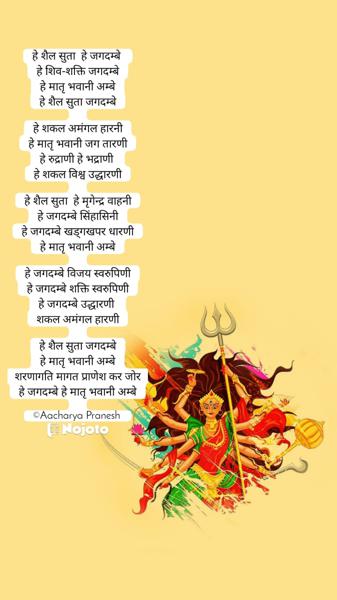 हे शैल सुता हे जगदम्बे
हे शिव-शक्ति जगदम्बे
हे मातृ भवानी अम्बे
हे शैल सुता जगदम्बे
हे शकल अमंगल हारनी
हे मातृ भवानी जग तारणी
हे रुद्राणी हे भद्राणी
हे शकल विश्व उद्धारणी
हे शैल सुता हे मृगेन्द्र वाहनी
हे जगदम्बे सिंहासिनी
हे जगदम्बे खड्गखपर धारणी
हे मातृ भवानी अम्बे
हे जगदम्बे विजय स्वरुपिणी
हे जगदम्बे शक्ति स्वरुपिणी
हे जगदम्बे उद्धारणी
शकल अमंगल हारणी
हे शैल सुता जगदम्बे
हे मातृ भवानी अम्बे
शरणागति मागत प्राणेश कर जोर
हे जगदम्बे हे मातृ भवानी अम्बे
©Aacharya Pranesh
Nojoto